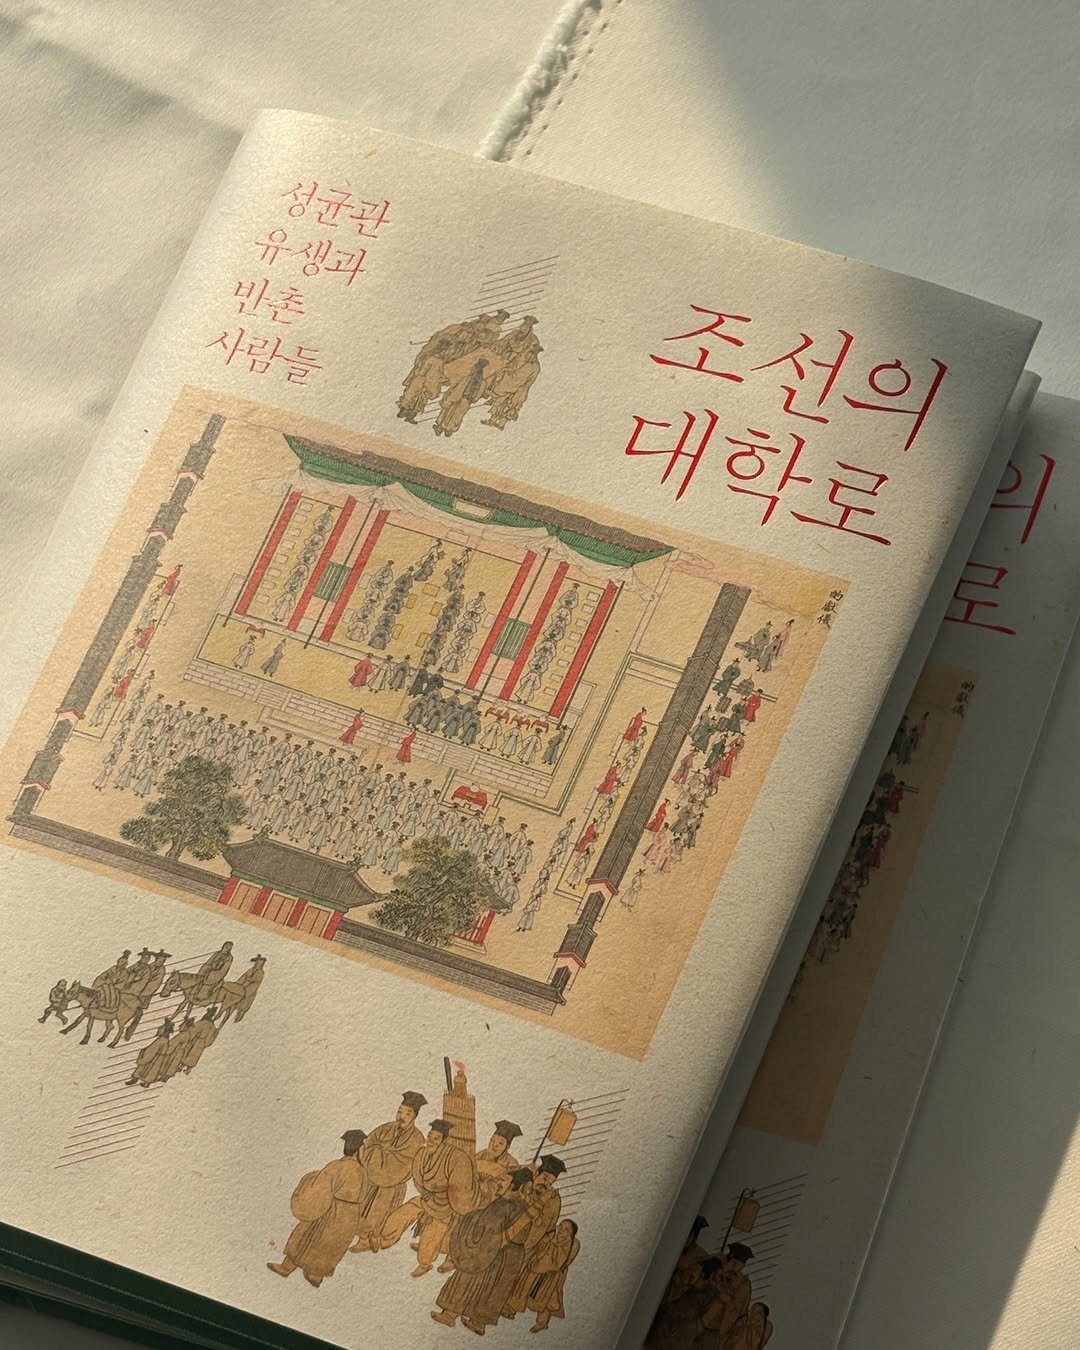 성균관
유생과
반촌
사람들
조선의
대학로
酌獻儀
의
로
酌獻儀